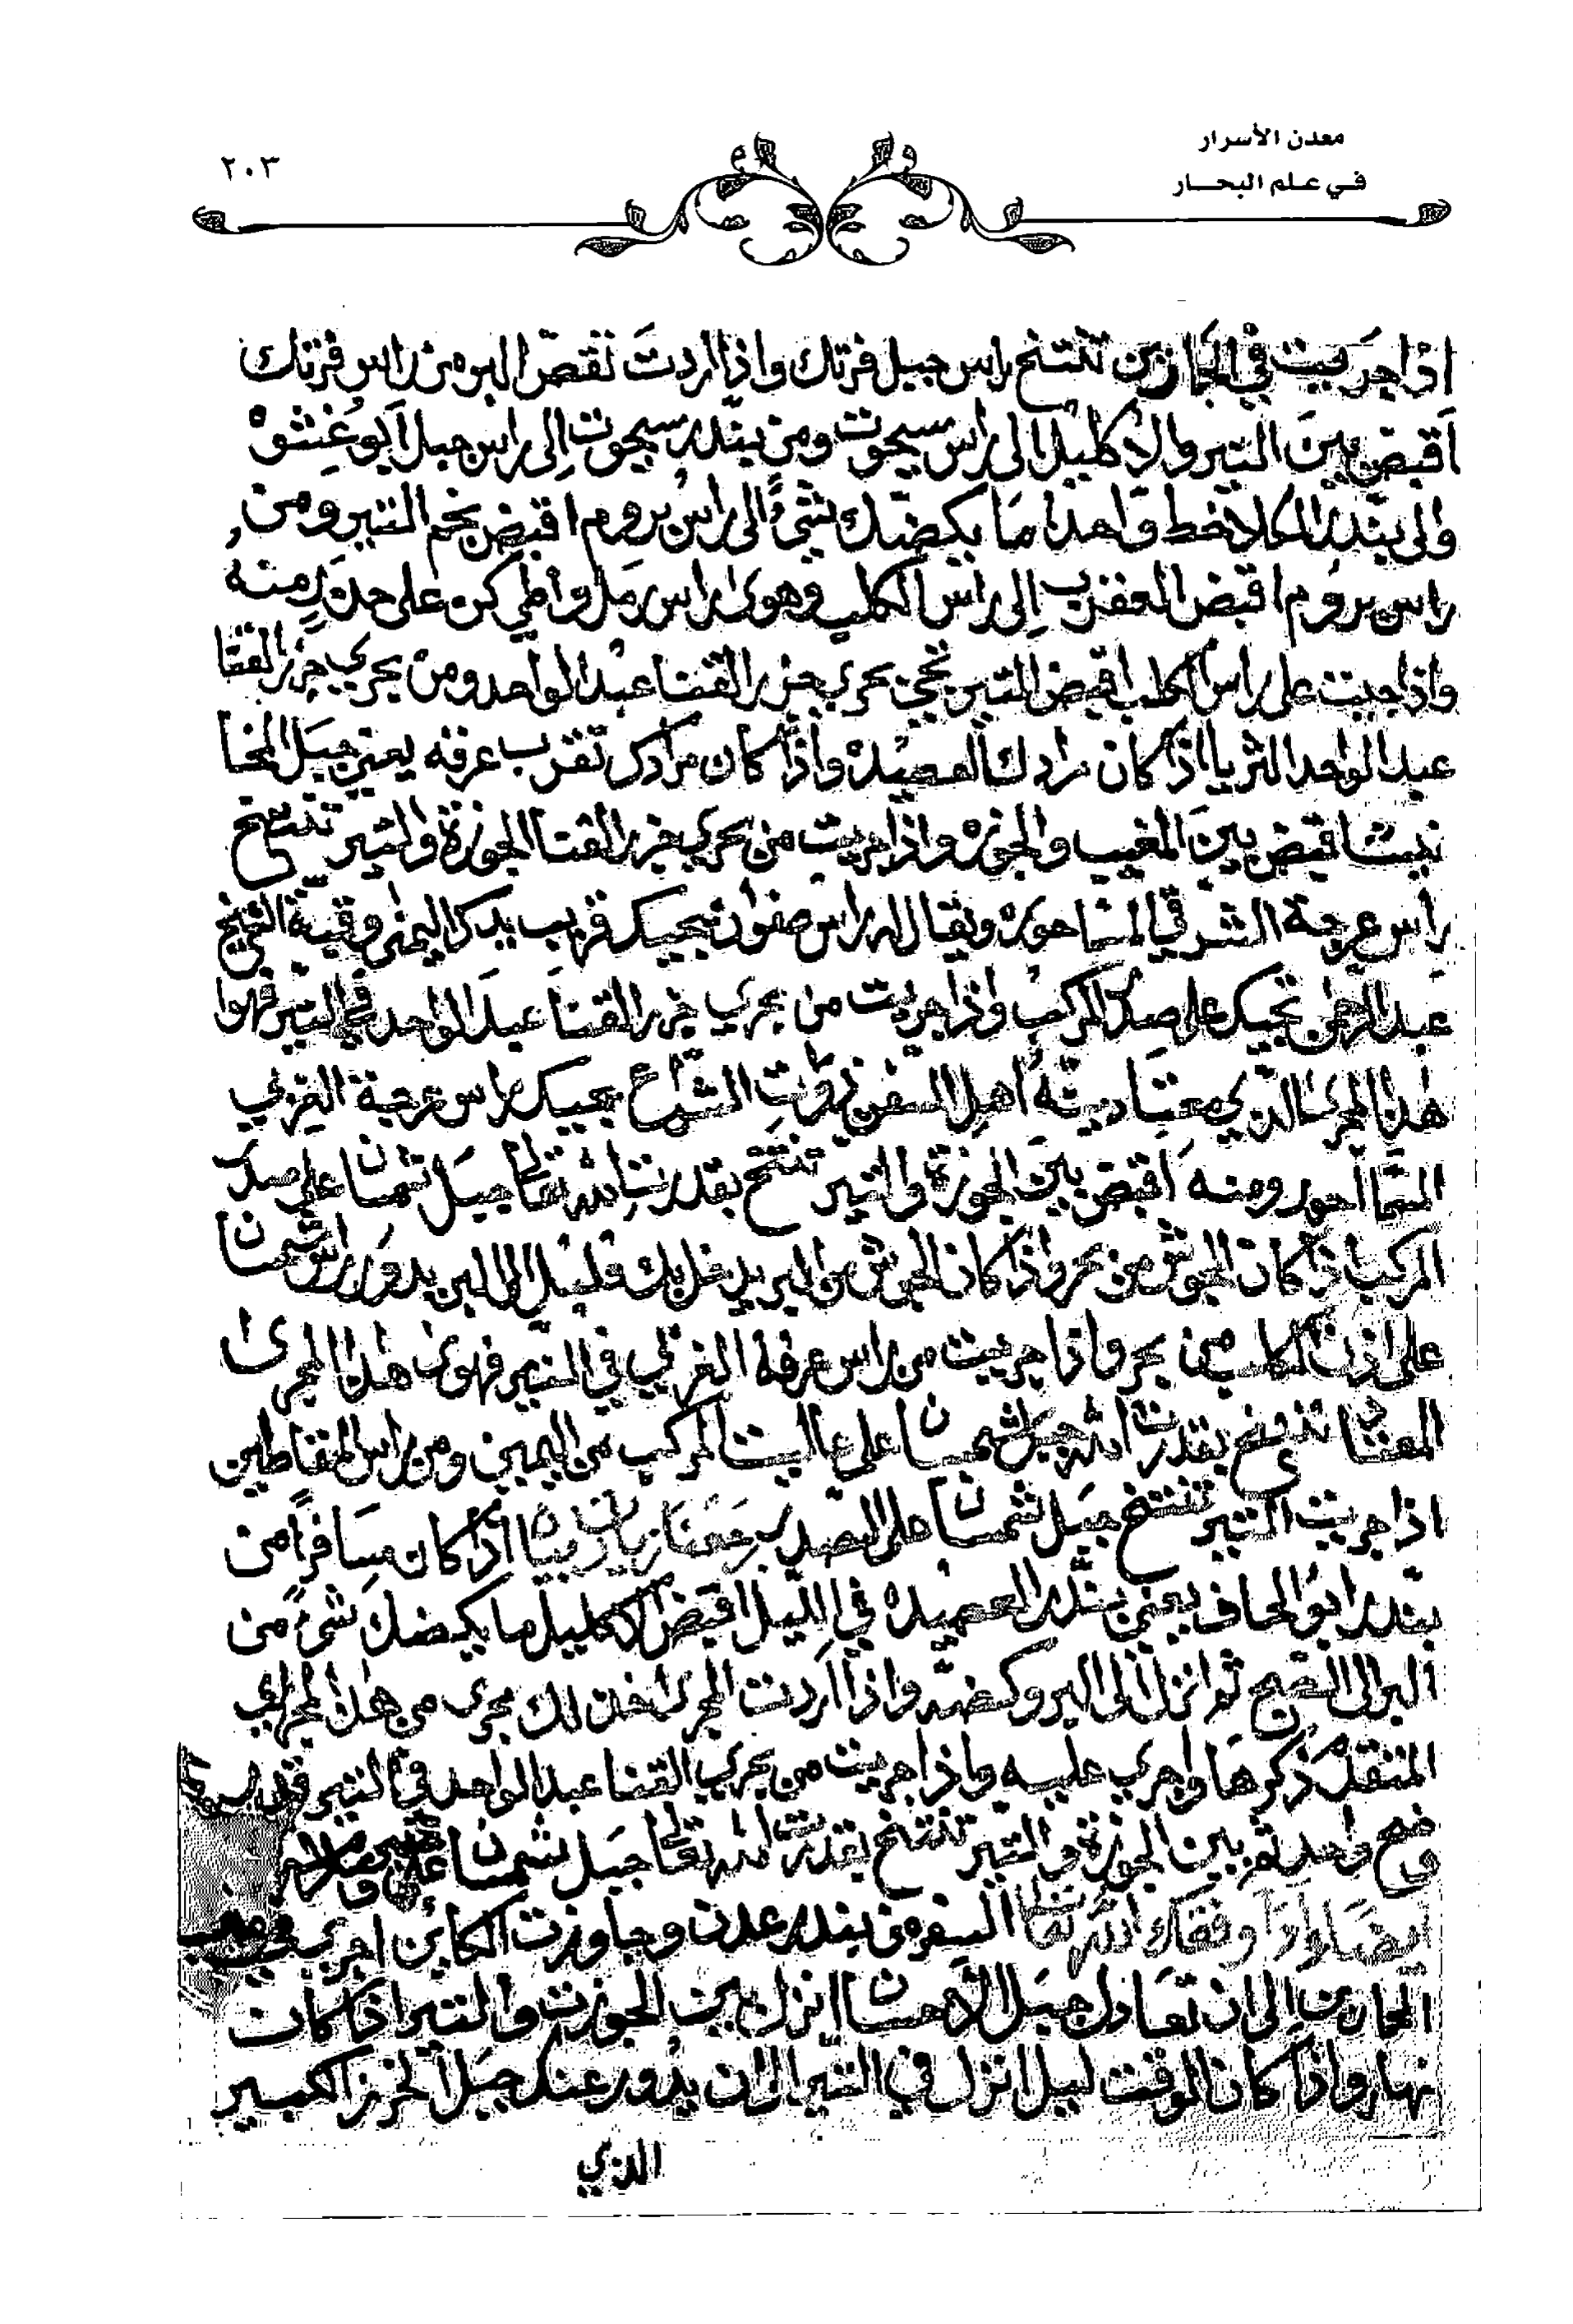 معدن الأسرار
في علم البحار
٢٠٣
اذا جريت في الحمارين تنتخ راس جبل فرتك واذا اردت تقصّ البر من راس فرتك
اقبض بين التير والاكليل الى راس سيحوت ومن بندر سيحوت إلى راس جبل أبو غشوه
والى بندر المكلا خط واحد ما يكضك شئ الى راس بروم اقبض نجم التير ومن
راس بروم اقبض العقرب إلى راس الكلب وهوى راس رمل واطي كن على حذر منه
واذا جيت على راس الكلب اقبض التير تجي بحري جزر القنا عبد الواحد ومن بحري جزر القنا
عبد الواحد الثريا اذا كان مرادك العصيده واذا كان مرادك تقرب عرفه يعني جبل المخا
نيشا قبض بين المغيب والجوزه واذا جريت من بحري جزر القنا الجوزة والتير تنتخ
راس عرجة الشرقي المشاهوره ويقال له راس صفوان يجيك قريب يدك اليمنى وقبة الشيخ
عبد الرحمن تجيك على صدر المركب واذا جريت من بحري جزر القنا عبد الواحد في التير فهوا
هذا المجرى الذي معتادينه أهل السفن ذوات الشراع يجيك راس عرجة الغربي
ومنه اقبض بين الجوزة والتير تنتخ بقدرت الله تعالى جبل شمسان على صدر
المركب اذا كان الجوش من بحر واذا كان الجوش من البر يدخل بك قليل الى البر يدور راس شمسان
على اذن الكلب من بحر واذا جريت من راس عرفة الغربي في التير فهوى هذا المجرى
المعتاد تنتخ بقدرت الله جبل شمسان على عاليت المركب من اليمين ومن راس المقاطين
اذا جريت التير تنتخ جبل شمسان على الصدر اذا كان مسافراً من
بندر ابو الحاف يعني بندر العصيده في الليل اقبض الاكليل ما يكضك شئ من
البر الى الصبح ثم انزل الى البر وكضه واذا اردت المجرى اخذ لك مجرى من هذا المجاري
المتقدم ذكرها واجري عليه واذا جريت من بحري القنا عبد الواحد في التير قدر
واحد ثم بين الجوزة والتير تنتخ بقدرت الله تعالى جبل شمسان
ايضا واذا وفقك الله تعالى السفر من بندر عدن وجاوزت اجري في مغيب
الحمارين إلى ان تعادل جبل انزل بين الجوزت والتير اذا كانت
نهار واذا كان الوقت ليل انزل في التير الى ان يدور عندك جبل الخرز الكبير
الذي